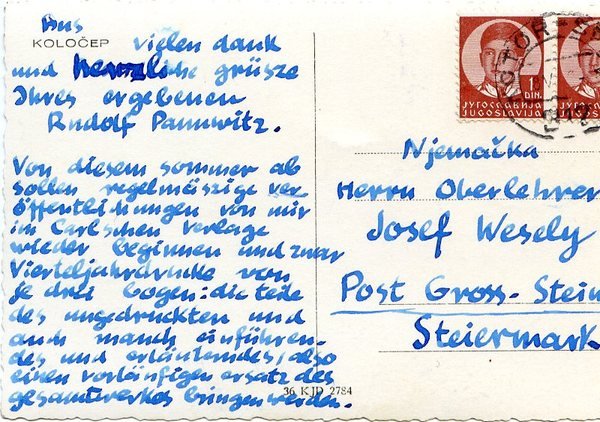 Aus
KOLOČEP
vielen dank
und herzliche grüsze
Ihres ergebenen
Rudolf Pannwitz.
Von diesem sommer ab
sollen regelmäszige ver
öffentlichungen von mir
im Carlschen verlage
wieder beginnen und zwar
Vierteljahrdrucke von
je drei bogen: die teile
des ungedruckten und
auch manch einführen-
des und erläuterndes, also
einen vorläufigen ersatz des
gesamtwerkes bringen werden.
36 KJD 2784
1
DIN.
ЈУГОСЛАВИЈА
JUGOSLAVIJA
ЈУГОСЛАВИЈА
JUGOSLAVIJA
Njemačka
Herrn Oberlehrer
Josef Wesely
Post Gross-Stein
Steiermark